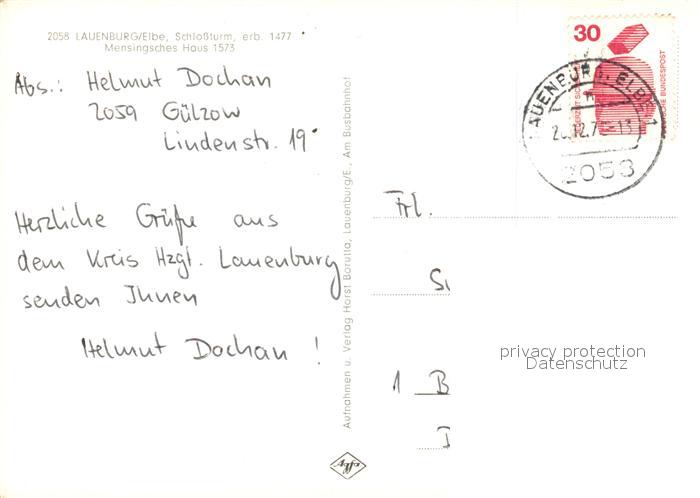 2058 LAUENBURG/Elbe, Schloßturm, erb. 1477
Mensingsches Haus 1573
Abs.: Helmut Dochan
2059 Gülzow
Lindenstr. 19
Herzliche Grüße aus
dem Kreis Hzgt. Lauenburg
senden Ihnen
Helmut Dochan !
Aufnahmen u. Verlag Horst Borutta, Lauenburg/E., Am Busbahnhof
Agfa
30
DEUTSCHE BUNDESPOST
LAUENBURG, ELBE 1
2058
Frl.
S
1 B
privacy protection
Datenschutz